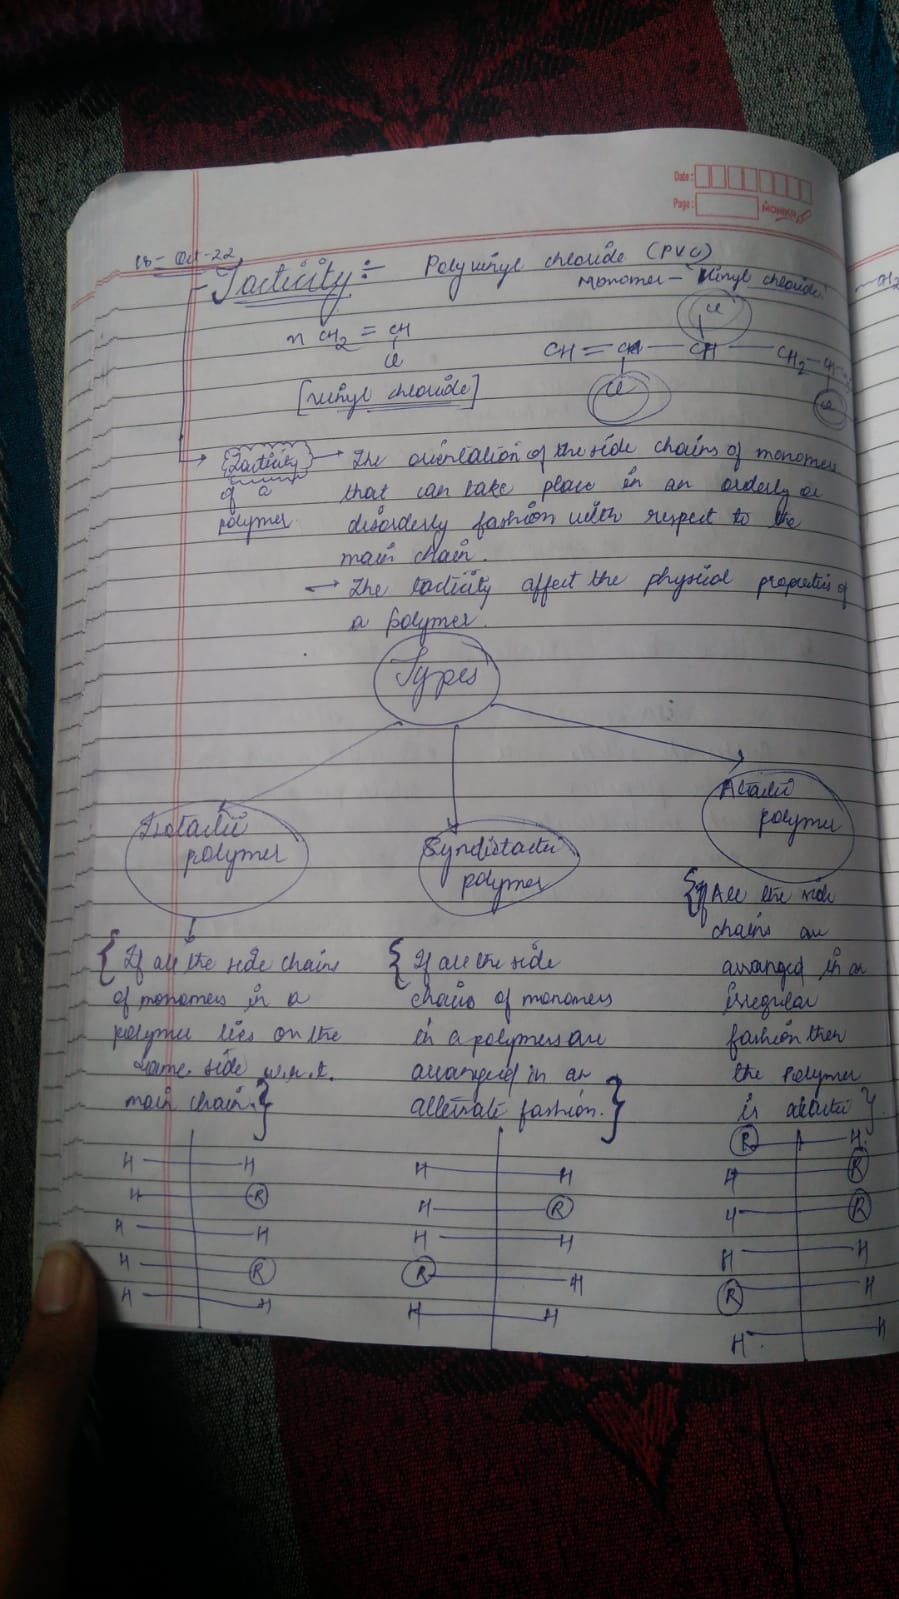 Date:
Page:
MONIKA
18-Oct-22
Tacticity:- Polyvinyl chloride (PVC)
Monomer - Vinyl chloride
n CH2 = CH
Cl
[Vinyl chloride]
Cl
CH = CH — CH — CH2 — CH
Cl
Cl
Tacticity of a polymer
→ The orientation of the side chains of monomers
that can take place in an orderly or
disorderly fashion with respect to the
main chain.
→ The tacticity affect the physical properties of
a polymer.
Types
Isotactic
polymer
Syndiotactic
polymer
Atactic
polymer
{ If all the side chains
of monomers in a
polymer lies on the
same side w.r.t.
main chain. }
{ If all the side
chains of monomers
in a polymers are
arranged in an
alternate fashion. }
{ If All the side
chains are
arranged in an
irregular
fashion then
the polymer
is atactic }
H H
H R
H H
H R
H H
H H
H R
H H
R H
H H
R H
H R
H R
H H
R H
H H